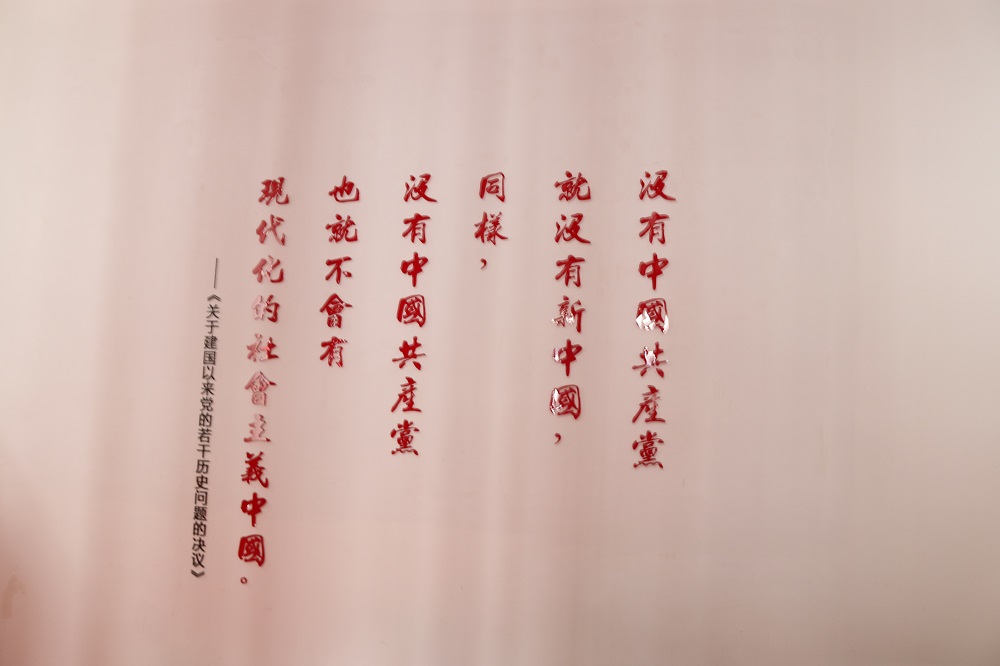 沒有中國共產黨
就沒有新中國，
同樣，
沒有中國共產黨
也就不會有
現代化的社會主義中國。
——《关于建国以来党的若干历史问题的决议》